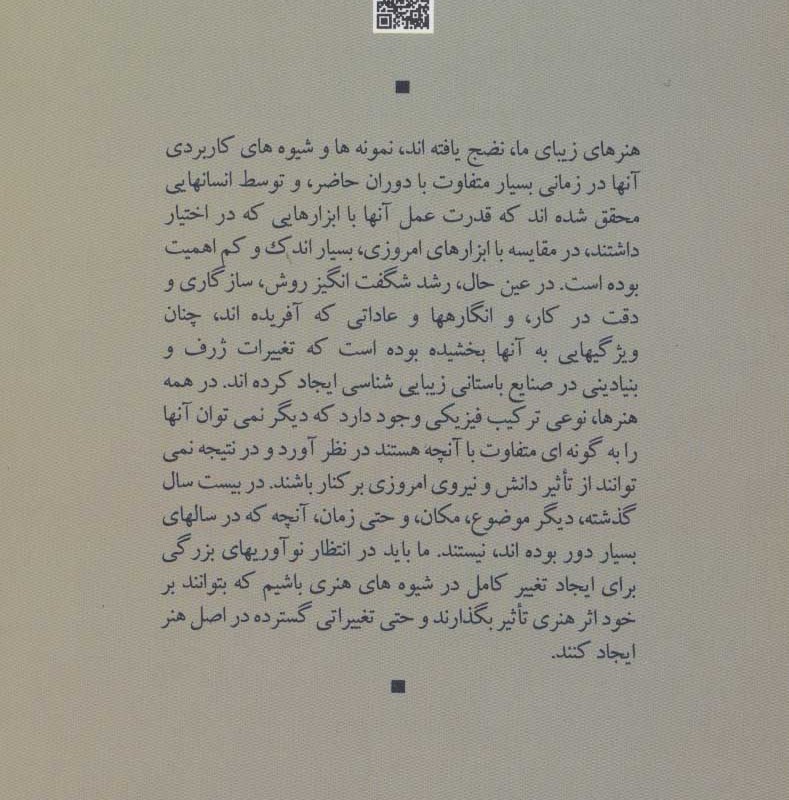 هنرهای زیبای ما، نضج یافته اند، نمونه ها و شیوه های کاربردی
آنها در زمانی بسیار متفاوت با دوران حاضر، و توسط انسانهایی
محقق شده اند که قدرت عمل آنها با ابزارهایی که در اختیار
داشتند، در مقایسه با ابزارهای امروزی، بسیار اندک و کم اهمیت
بوده است. در عین حال، رشد شگفت انگیز روش، سازگاری و
دقت در کار، و انگارهها و عاداتی که آفریده اند، چنان
ویژگیهایی به آنها بخشیده بوده است که تغییرات ژرف و
بنیادینی در صنایع باستانی زیبایی شناسی ایجاد کرده اند. در همه
هنرها، نوعی ترکیب فیزیکی وجود دارد که دیگر نمی توان آنها
را به گونه ای متفاوت با آنچه هستند در نظر آورد و در نتیجه نمی
توانند از تأثیر دانش و نیروی امروزی برکنار باشند. در بیست سال
گذشته، دیگر موضوع، مکان، و حتی زمان، آنچه که در سالهای
بسیار دور بوده اند، نیستند. ما باید در انتظار نوآوریهای بزرگی
برای ایجاد تغییر کامل در شیوه های هنری باشیم که بتوانند بر
خود اثر هنری تأثیر بگذارند و حتی تغییراتی گسترده در اصل هنر
ایجاد کنند.